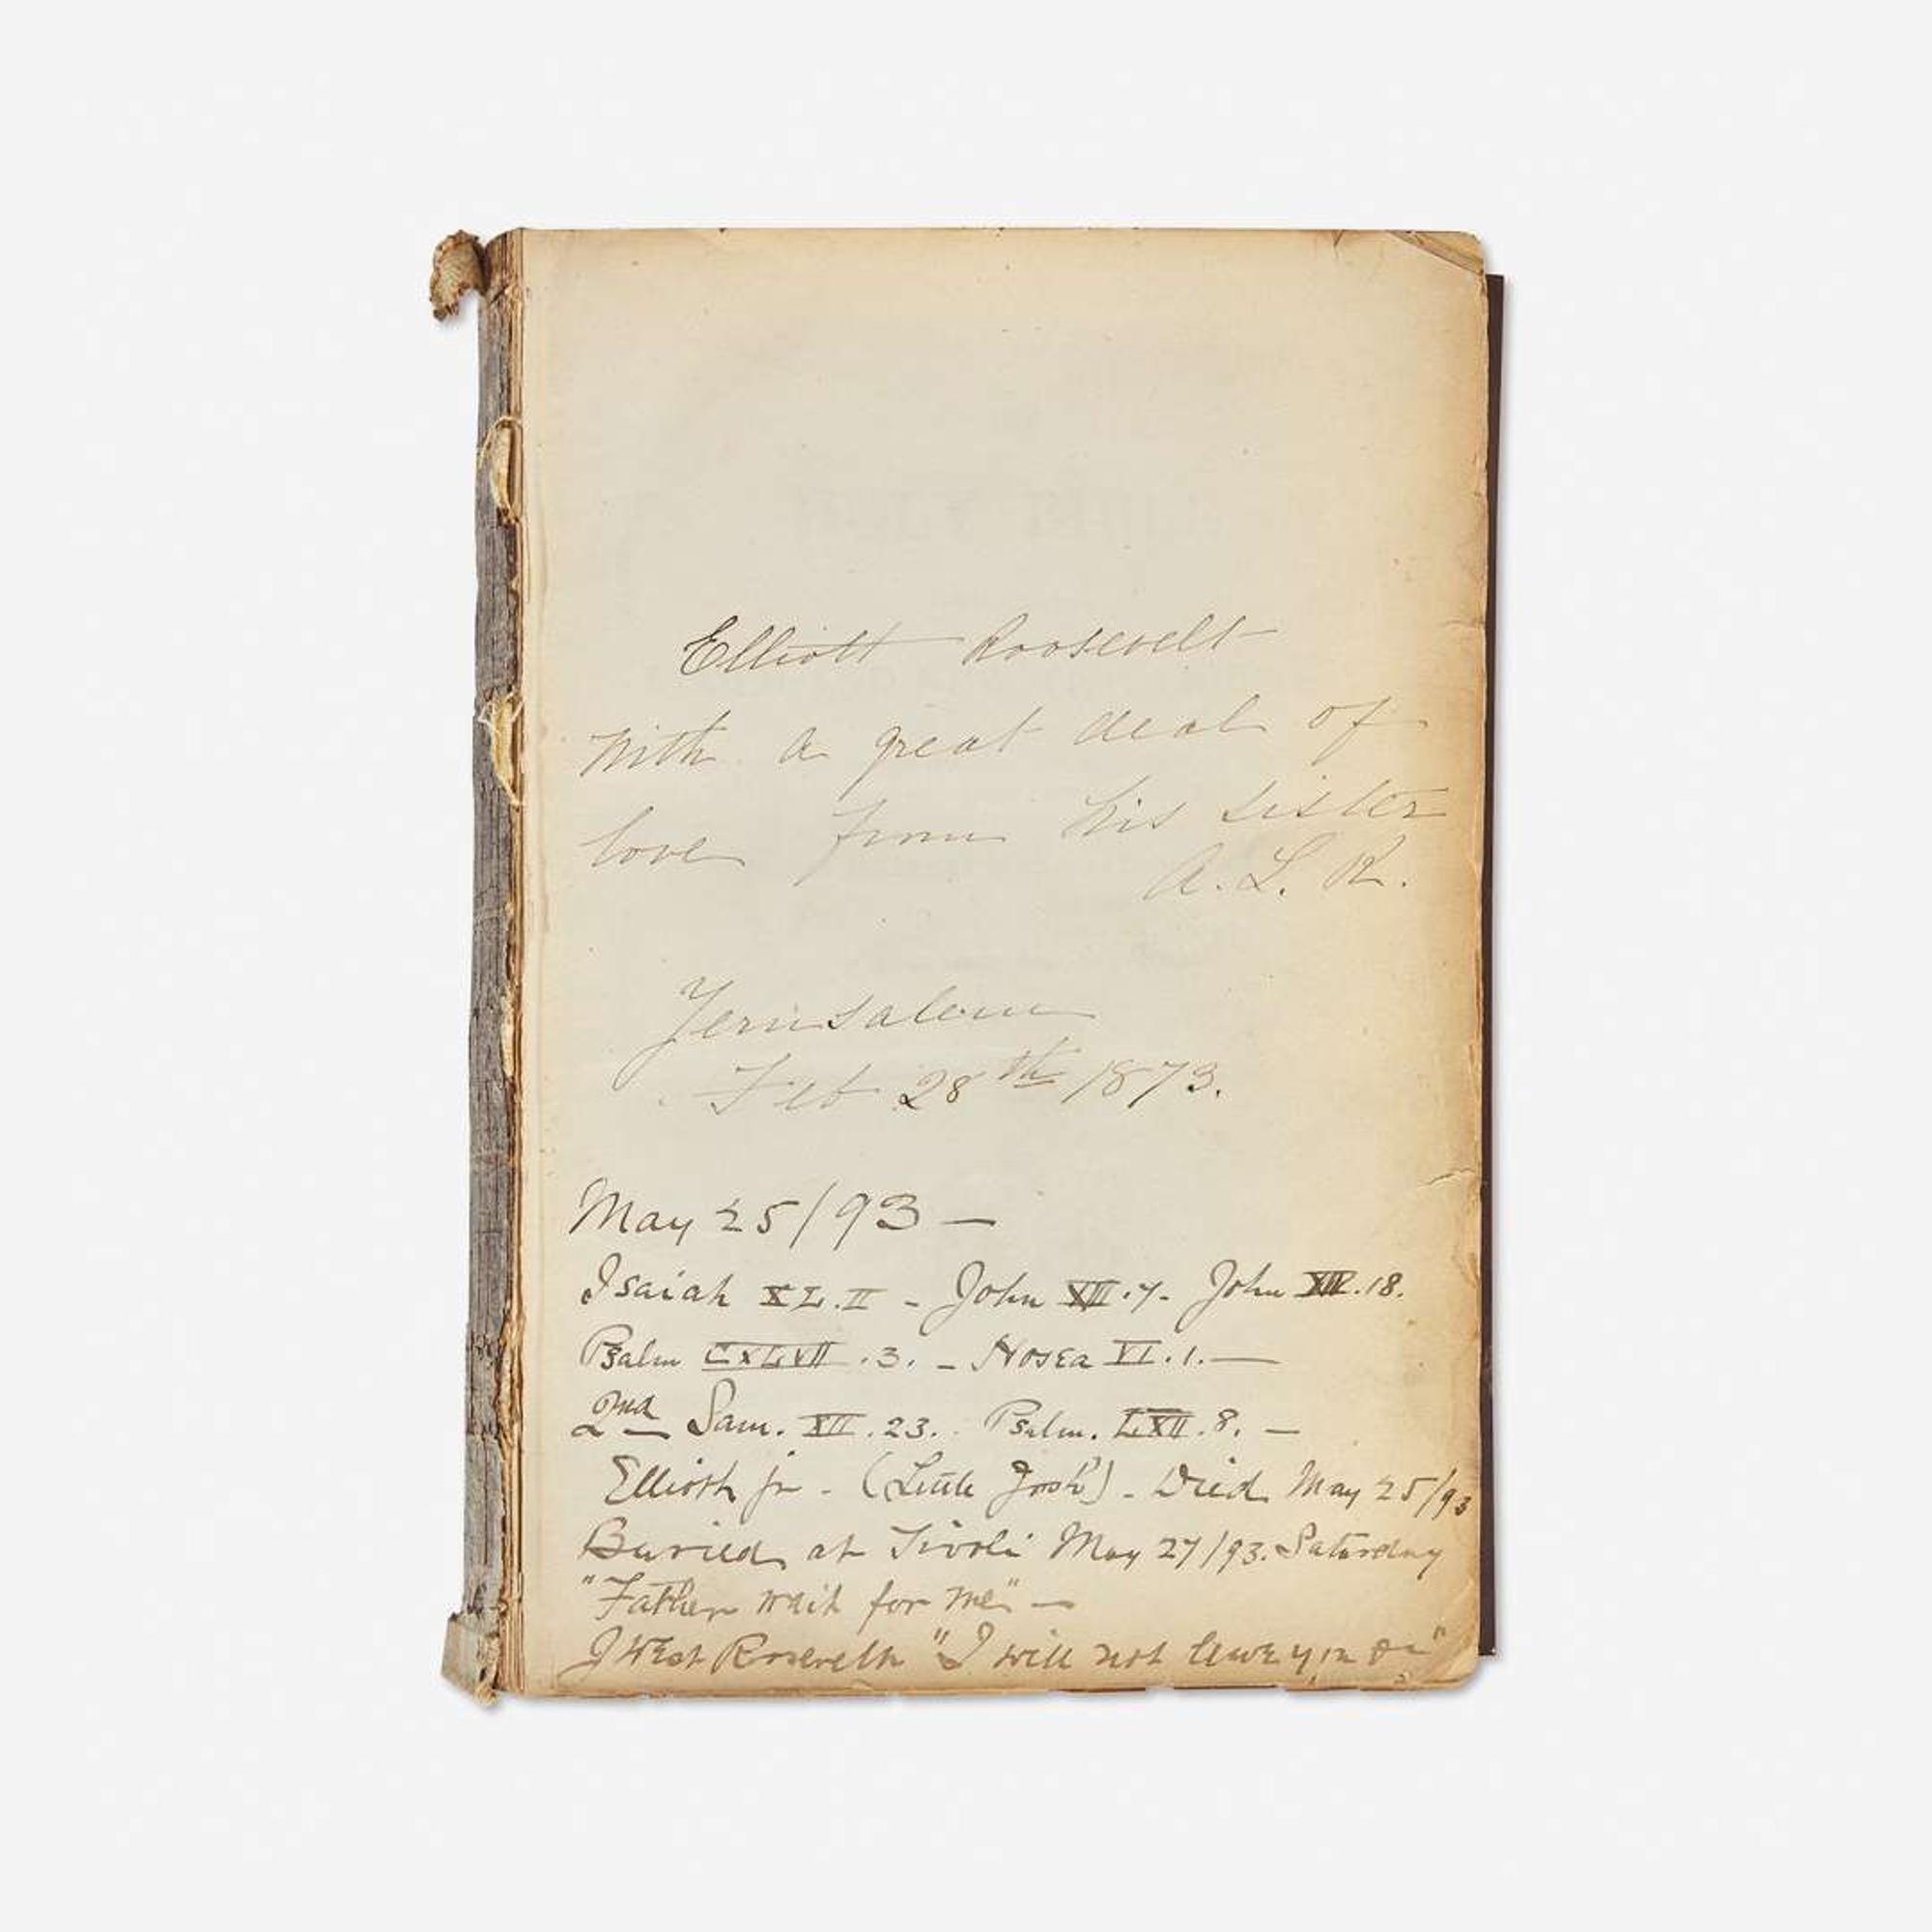 Elliott Roosevelt
With a great deal of
love from his sister
A. L. R.
Jerusalem
Feb 28th 1873.
May 25/93 —
Isaiah XL.II - John XIII.7- John XIV.18.
Psalm CXLVII.3. - Hosea VI.1. —
2nd Sam. XII.23. Psalm. LXII.8. —
Elliott jr - (Little Josh') - Died May 25/93
Buried at Tivoli May 27/93. Saturday
"Father wait for me" —
J West Roosevelt "I will not leave you